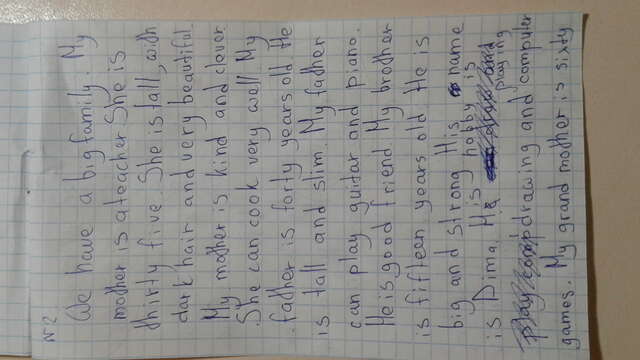 N 2
We have a big family. My
mother is a teacher She is
thirty five. She is tall, with
dark hair and very beautiful.
My mother is kind and clever.
She can cook very well My
father is forty years old. He
is tall and slim. My father
can play guitar and piano.
He is good friend. My brother
is fifteen years old. He is
big and strong. His name
is Dima. His hobby is
playing
drawing and computer
games. My grand mother is sixty